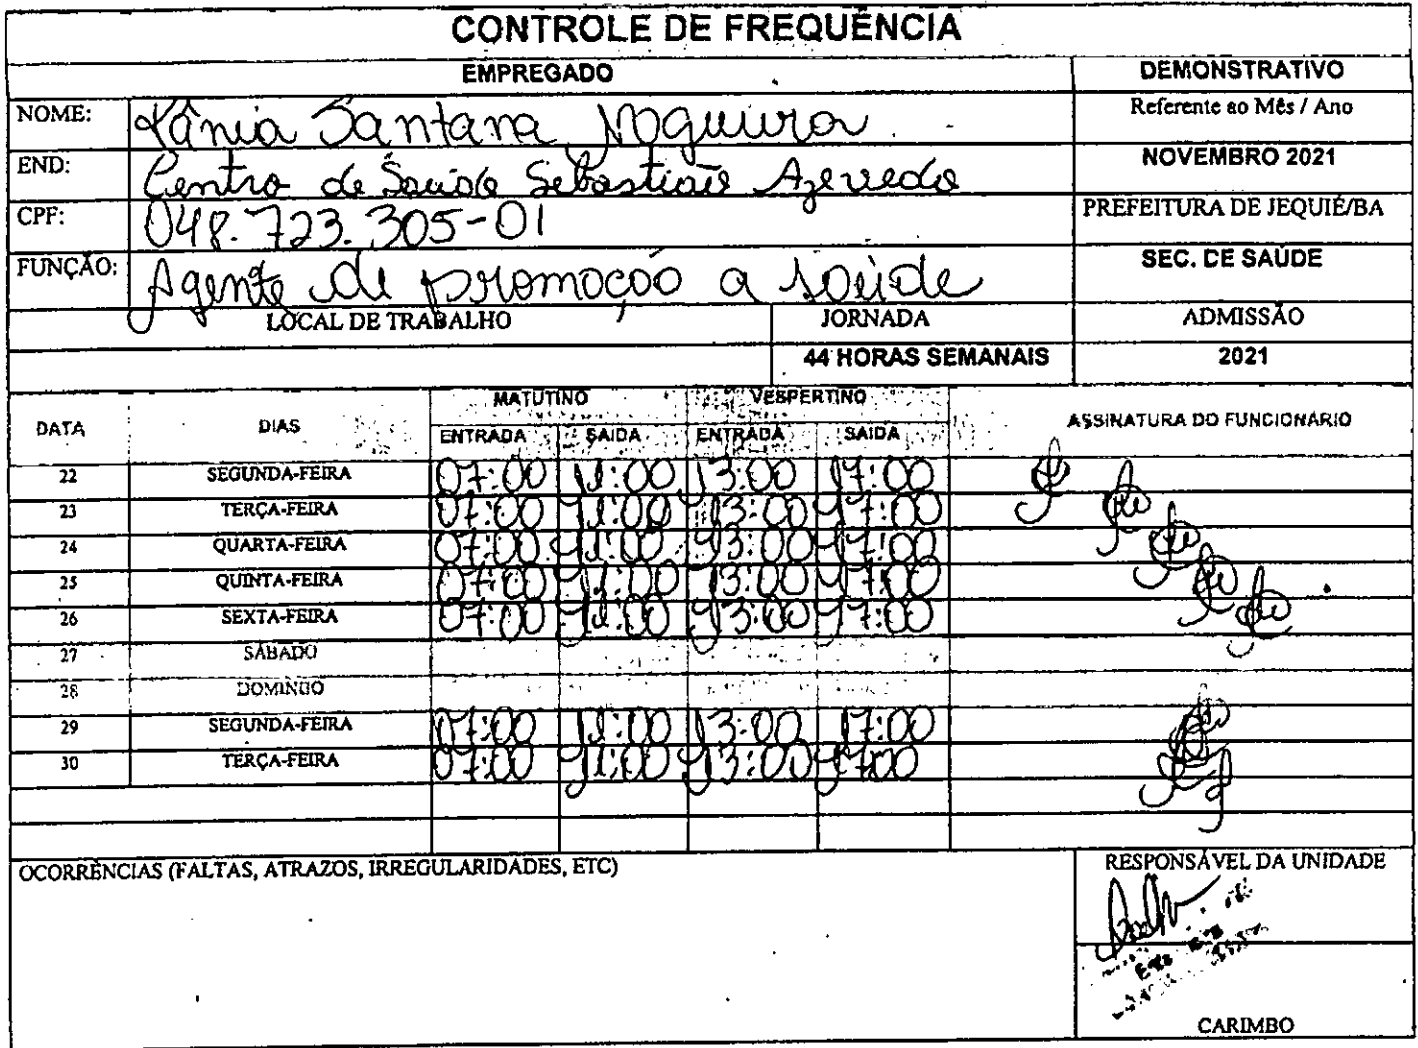 CONTROLE DE FREQUÊNCIA
EMPREGADO DEMONSTRATIVO
NOME: Vânia Santana Nogueira Referente ao Mês / Ano
END: Centro de Saúde Sebastião Azevedo NOVEMBRO 2021
CPF: 048.723.305-01 PREFEITURA DE JEQUIÉ/BA
FUNÇÃO: Agente de promoção a saúde SEC. DE SAÚDE
LOCAL DE TRABALHO JORNADA ADMISSÃO
44 HORAS SEMANAIS 2021
MATUTINO VESPERTINO
DATA DIAS ENTRADA SAIDA ENTRADA SAIDA ASSINATURA DO FUNCIONARIO
22 SEGUNDA-FEIRA 07:00 11:00 13:00 17:00
23 TERÇA-FEIRA 07:00 11:00 13:00 17:00
24 QUARTA-FEIRA 07:00 11:00 13:00 17:00
25 QUINTA-FEIRA 07:00 11:00 13:00 17:00
26 SEXTA-FEIRA 07:00 11:00 13:00 17:00
27 SÁBADO
28 DOMINGO
29 SEGUNDA-FEIRA 07:00 11:00 13:00 17:00
30 TERÇA-FEIRA 07:00 11:00 13:00 17:00
OCORRÊNCIAS (FALTAS, ATRAZOS, IRREGULARIDADES, ETC) RESPONSÁVEL DA UNIDADE
CARIMBO